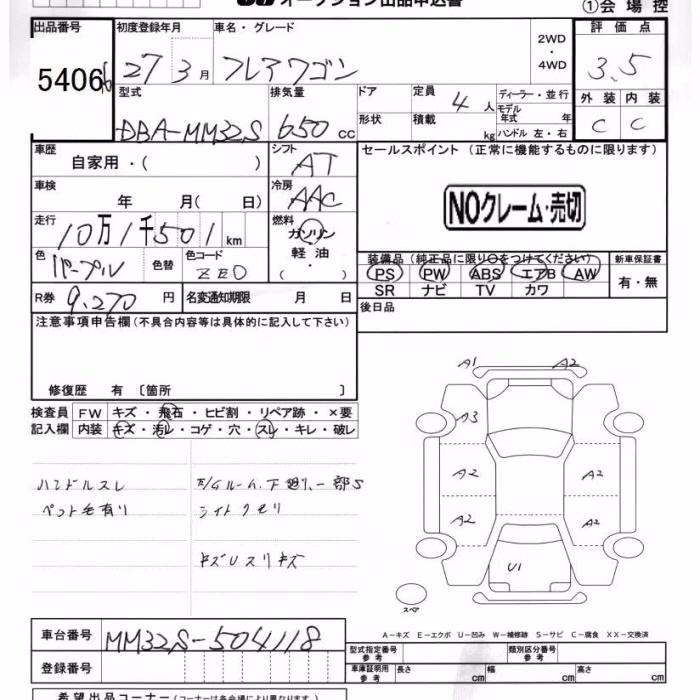 オークション出品申込書 ①会場控
出品番号 初度登録年月 車名・グレード 2WD・4WD 評価点
5406 27 3月 フレアワゴン 3.5
型式 排気量 ドア 定員 4人 ディーラー・並行 外装 内装
DBA-MM32S 650cc 形状 積載 kg モデル年式 年 ハンドル 左・右 C C
車歴 シフト セールスポイント (正常に機能するものに限ります)
自家用・( ) AT
車検 冷房
年 月( 日) AAC NOクレーム・売切
走行 燃料
10万1千501km ガソリン
色 色替 色コード 軽油 装備品(純正品に限り○をつけてください) 新車保証書
パープル ZE0 ・( ) PS PW ABS エアB AW 有・無
SR ナビ TV カワ
R券 9,270円 名変通知期限 月 日 後日品
注意事項申告欄(不具合内容等は具体的に記入して下さい)
修復歴 有 〔箇所 〕
検査員 FW キズ・飛石・ヒビ割・リペア跡・×要
記入欄 内装 キズ・汚レ・コゲ・穴・スレ・キレ・破レ
ハンドルスレ
ペット毛有り
下廻り一部S
ライトクモリ
キズUスリキズ
A1 A2
A3
A2 A2
A2 A2
U1
スペア
A-キズ E-エクボ U-凹み W-補修跡 S-サビ C-腐食 XX-交換済
車台番号 MM32S-504118
登録番号
型式指定番号 参考 類別区分番号 参考
車庫証明用 参考 長さ cm 幅 cm 高さ cm
希望出品コーナー(コーナーは各会場により異なります)